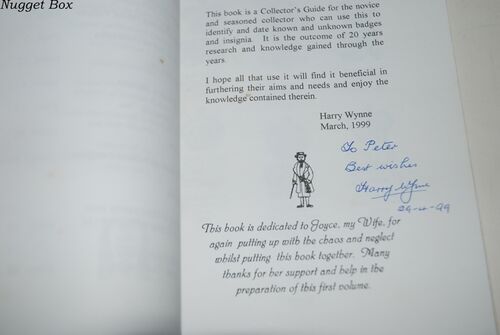 Nugget Box
This book is a Collector's Guide for the novice
and seasoned collector who can use this to
identify and date known and unknown badges
and insignia. It is the outcome of 20 years
research and knowledge gained through the
years.
I hope all that use it will find it beneficial in
furthering their aims and needs and enjoy the
knowledge contained therein.
Harry Wynne
March, 1999
To Peter
Best wishes
Harry Wynne
This book is dedicated to Joyce, my Wife, for
again putting up with the chaos and neglect
whilst putting this book together. Many
thanks for her support and help in the
preparation of this first volume.